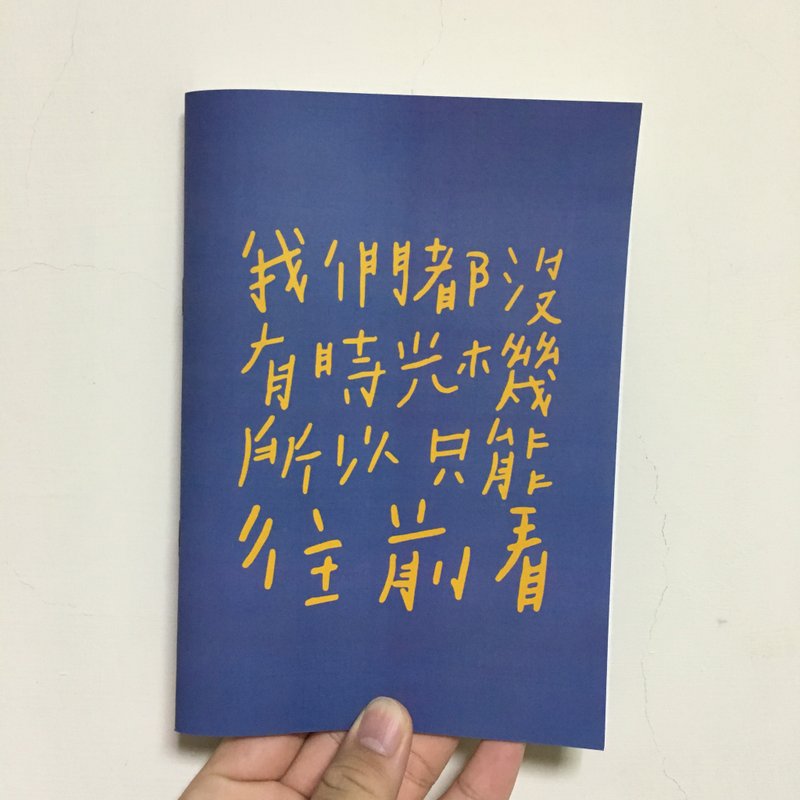 我們都沒
有時光機
所以只能
往前看